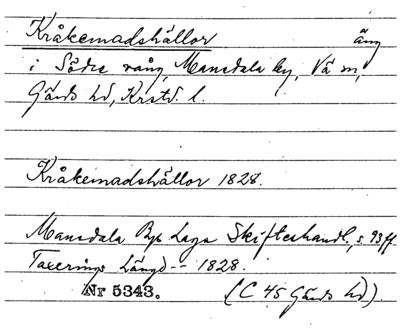 Kråkemadshällor äng
i Södre vång, Mansdala by, Vä sn,
Gärds hd, Krstd. l.
Kråkemadshällor 1828.
Mansdala Bys Laga Skifteshandl., s. 93 ff
Taxerings Längd -- 1828.
Nr 5343. (C 45 Gärds hd).